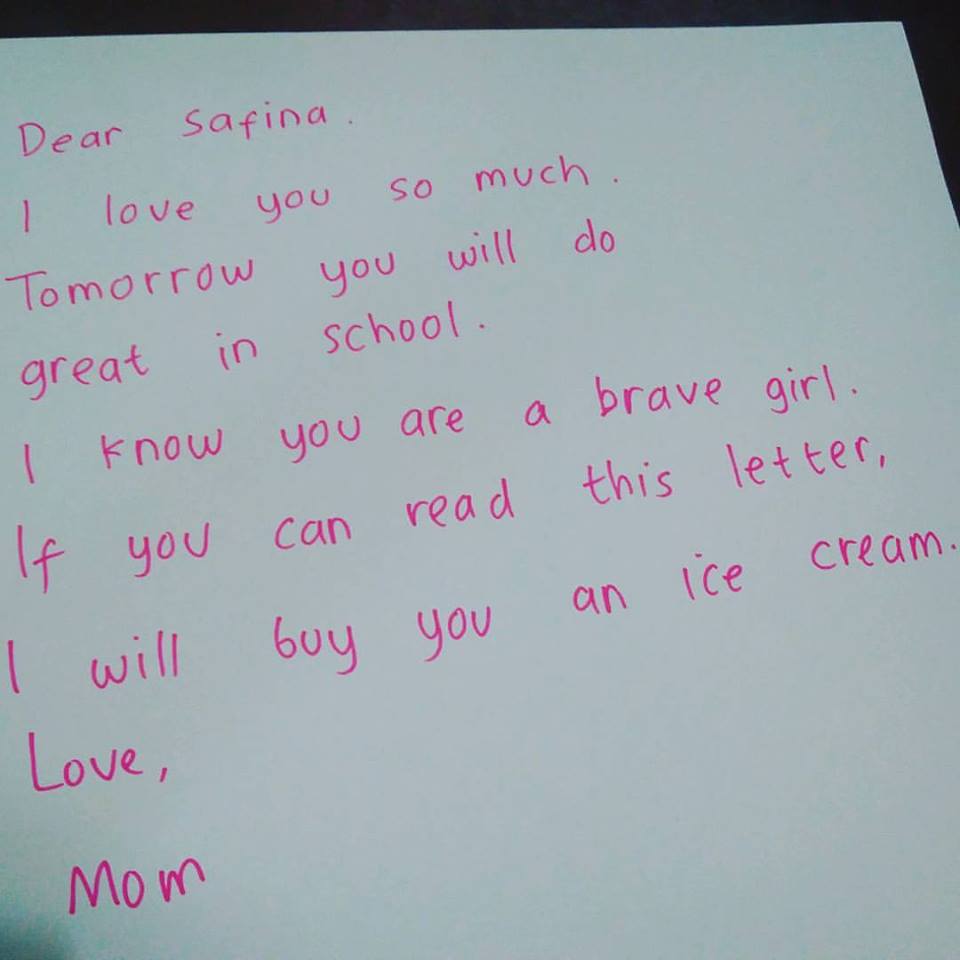 Dear Safina.
I love you so much.
Tomorrow you will do
great in school.
I know you are a brave girl.
If you can read this letter,
I will buy you an ice cream.
Love,
Mom